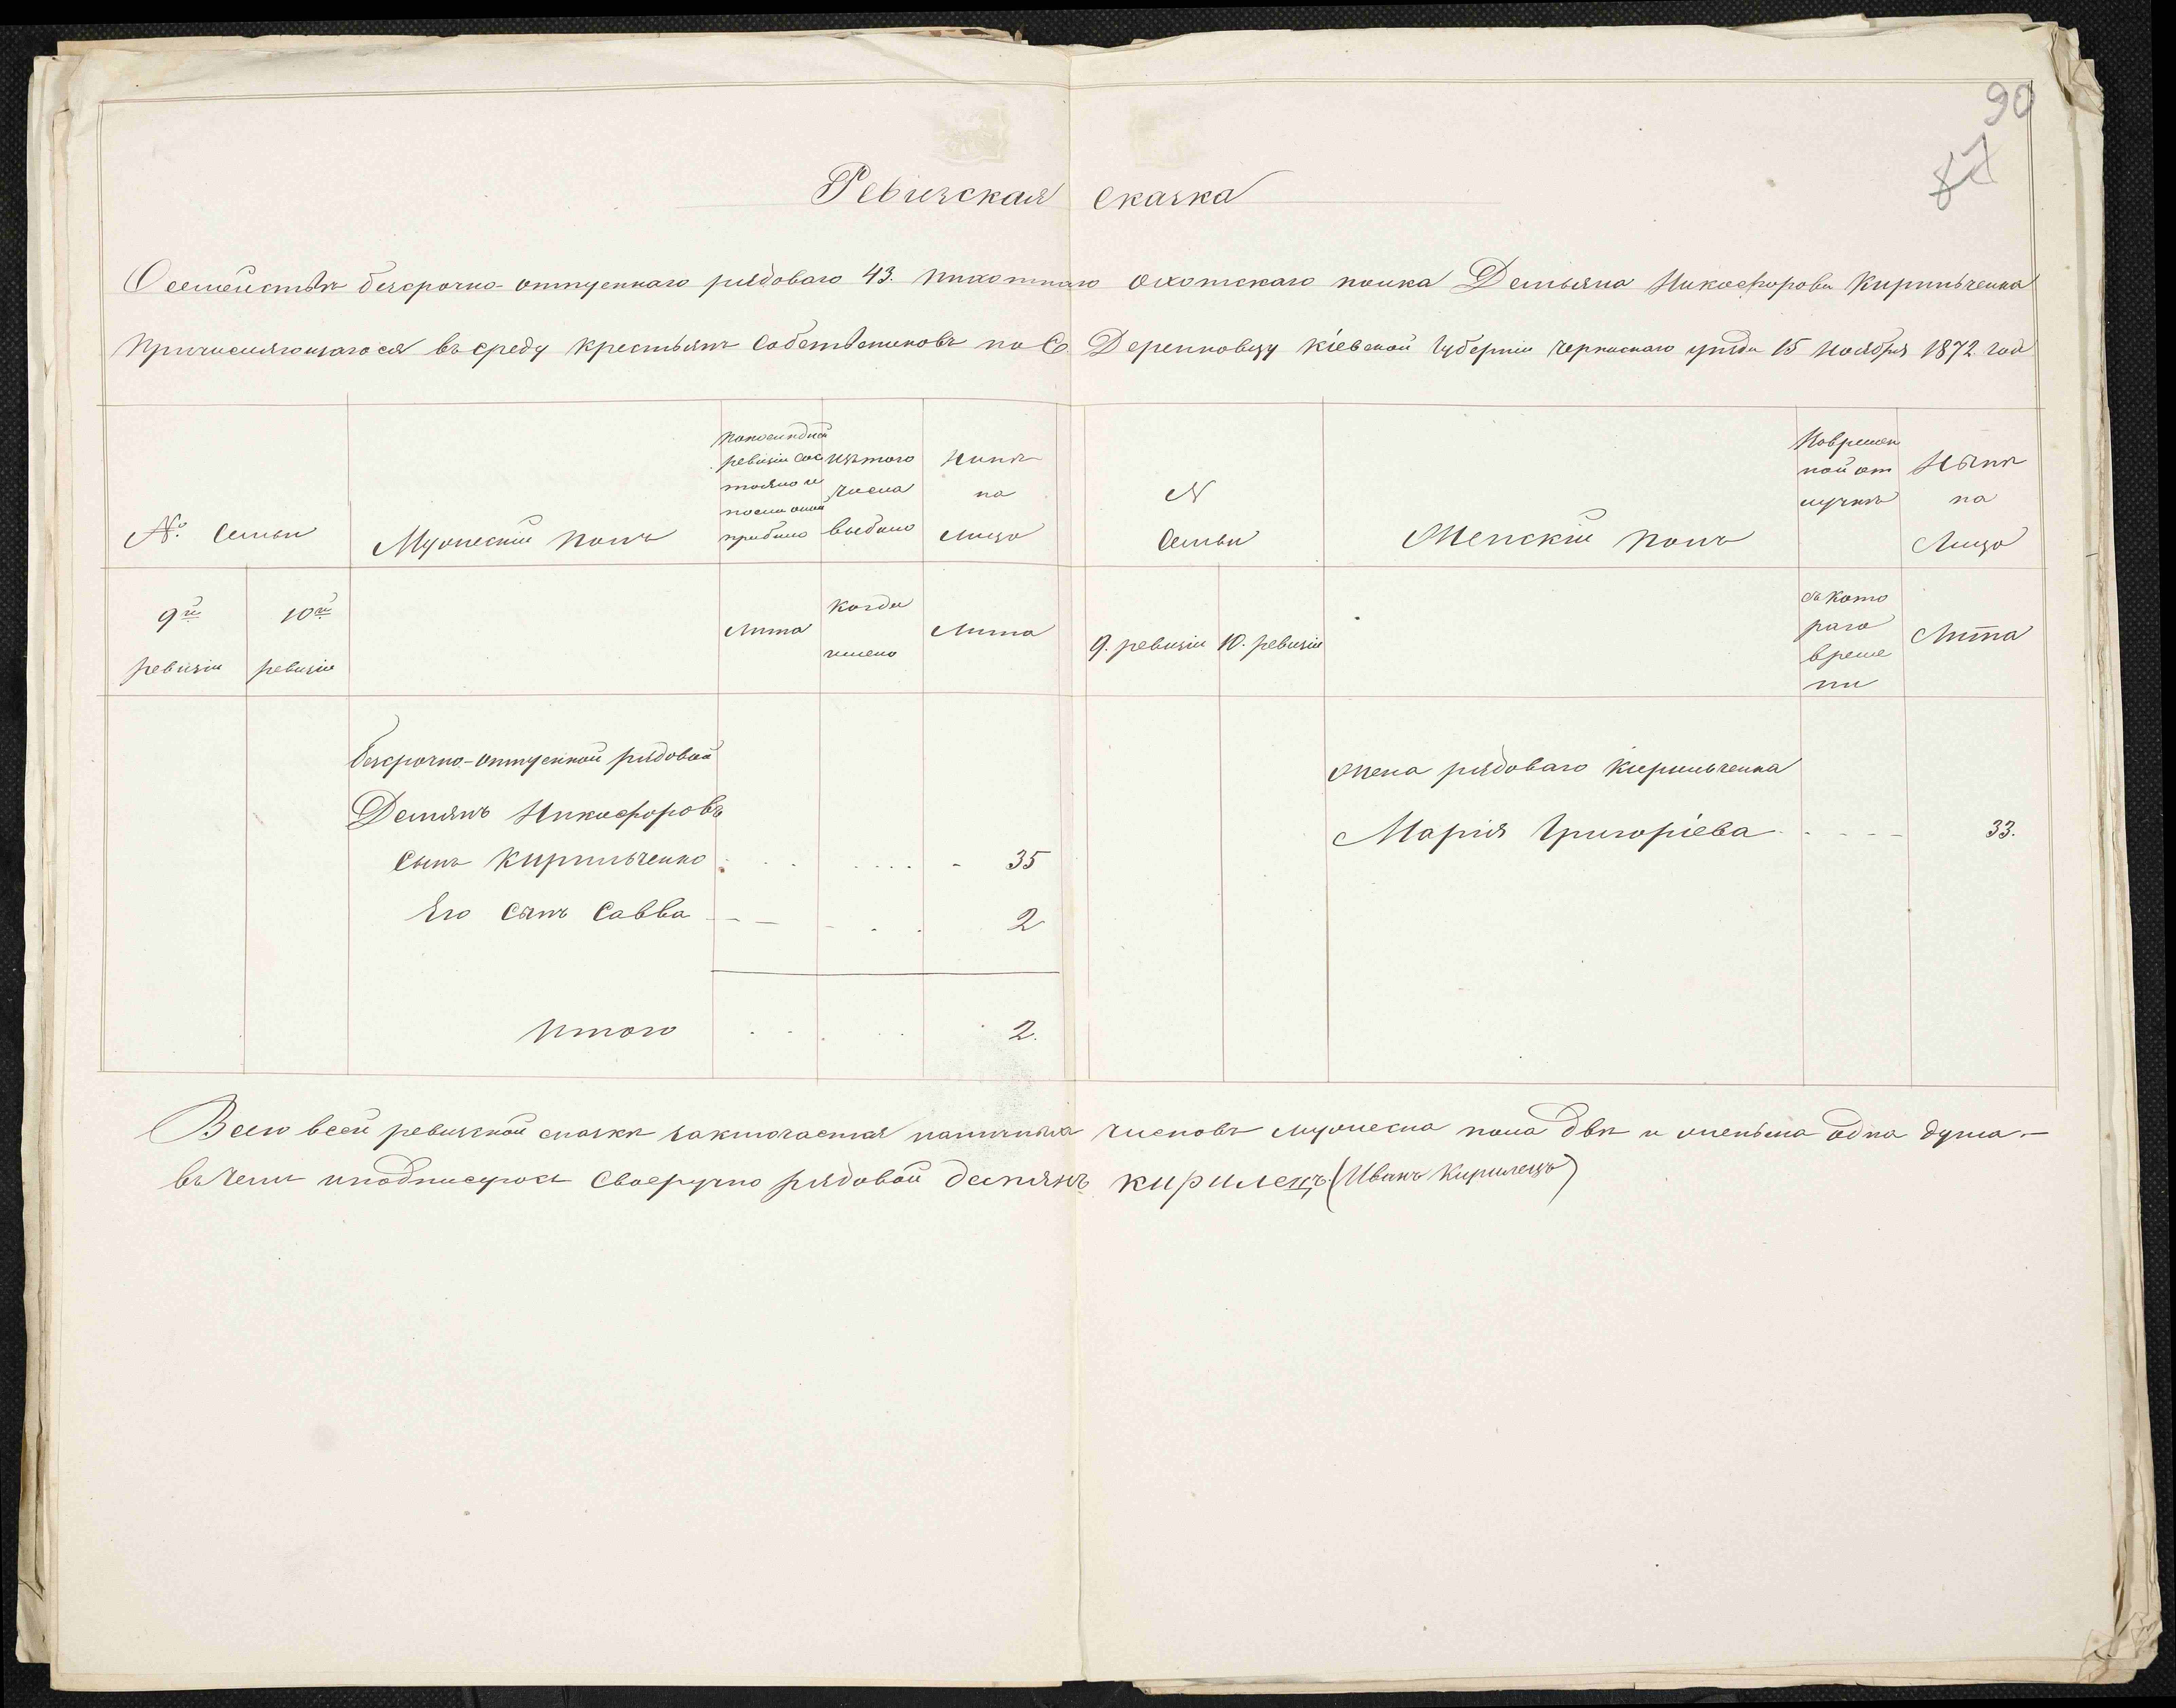 90
87
Ревизская сказка
О семействѣ безсрочно-отпускнаго рядоваго 43. пихотнаго Охотскаго полка Демьяна Никофорова Кирильченка
Причисляющагося въ среду крестьянъ Собственниковъ по С Деренковцу Кіевской Губерніи Черкаскаго уѣзда 15 Ноября 1872 год
№ Семьи
Мужескій полъ
По последней
ревизіи сос
тояло и
после оной
прибыло
Изъ того
числа
выбыло
Нынѣ
на
лицо
N
Семьи
Женскій полъ
Во времен
ной от
лучкѣ
Нынѣ
на
Лицо
9й
ревизіи
10й
ревизіи
лѣта
когда
имено
лѣта
9. ревизіи
10. ревизіи
съ кото
раго
време
ни
Лѣта
безсрочно-отпускной рядовой
Демянъ Никофоровъ
Сынъ Кирильченко 35
Его Сынъ Савва 2
Итого 2.
Жена рядоваго Кирильченка
Марія Григоріева 33.
Всего в сей ревизкой сказкѣ заключается наличныхъ числовъ мужеска пола двѣ и женьска одна душа —
въ чемъ и подписуюсь Своеручно рядовой демянъ кирилецъ (Иванъ Кирилецъ)